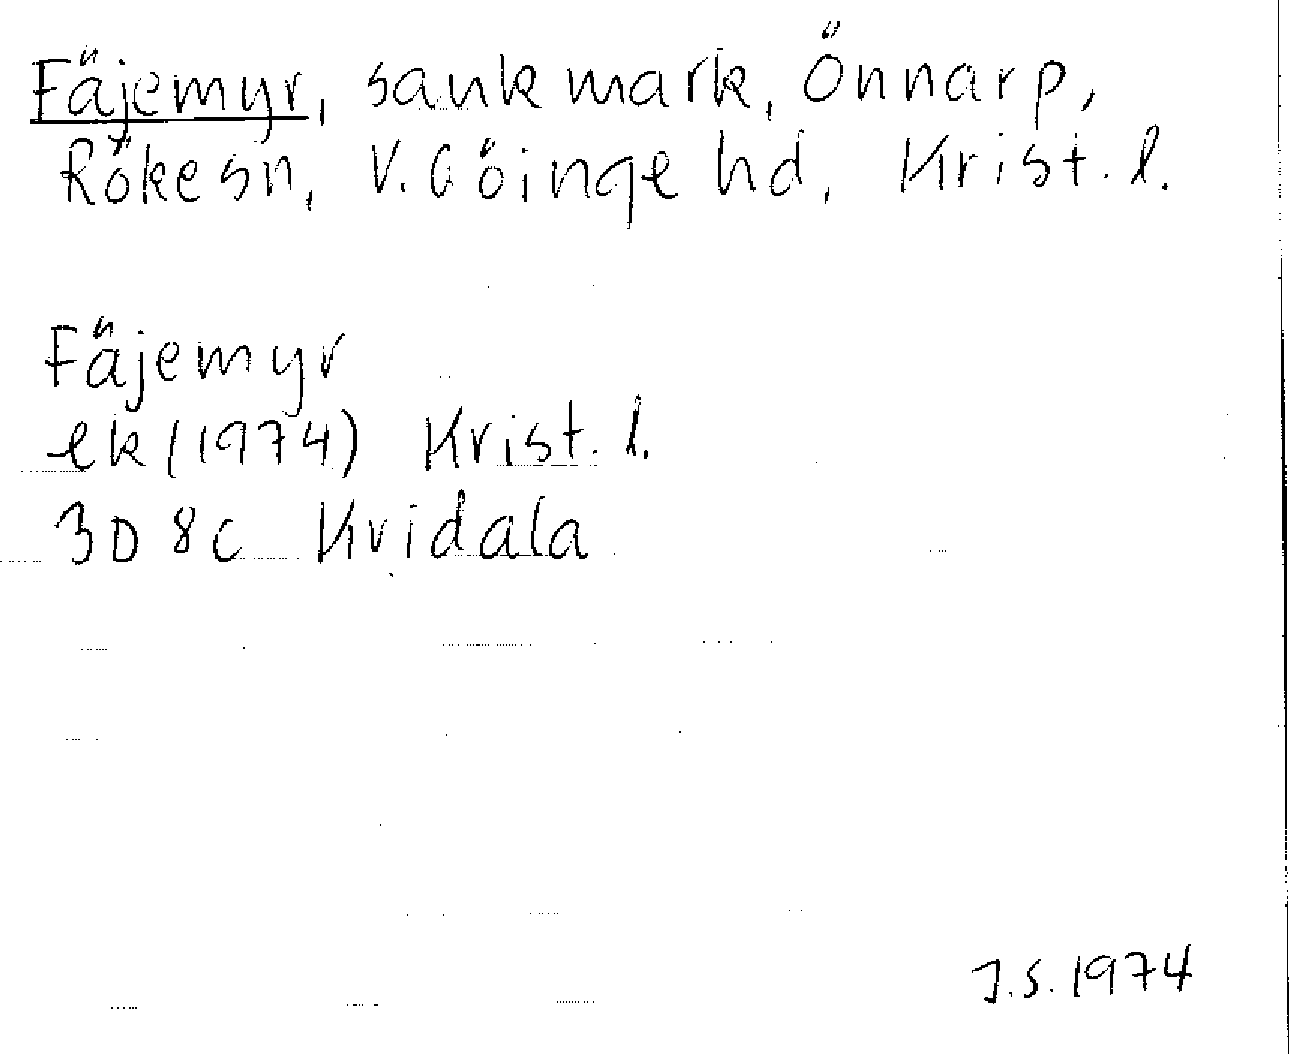 Fäjemyr, sank mark, Önnarp,
Röke sn, V. Göinge hd, Krist. l.
Fäjemyr
ek (1974) Krist. l.
3D 8c Kvidala
J.S. 1974